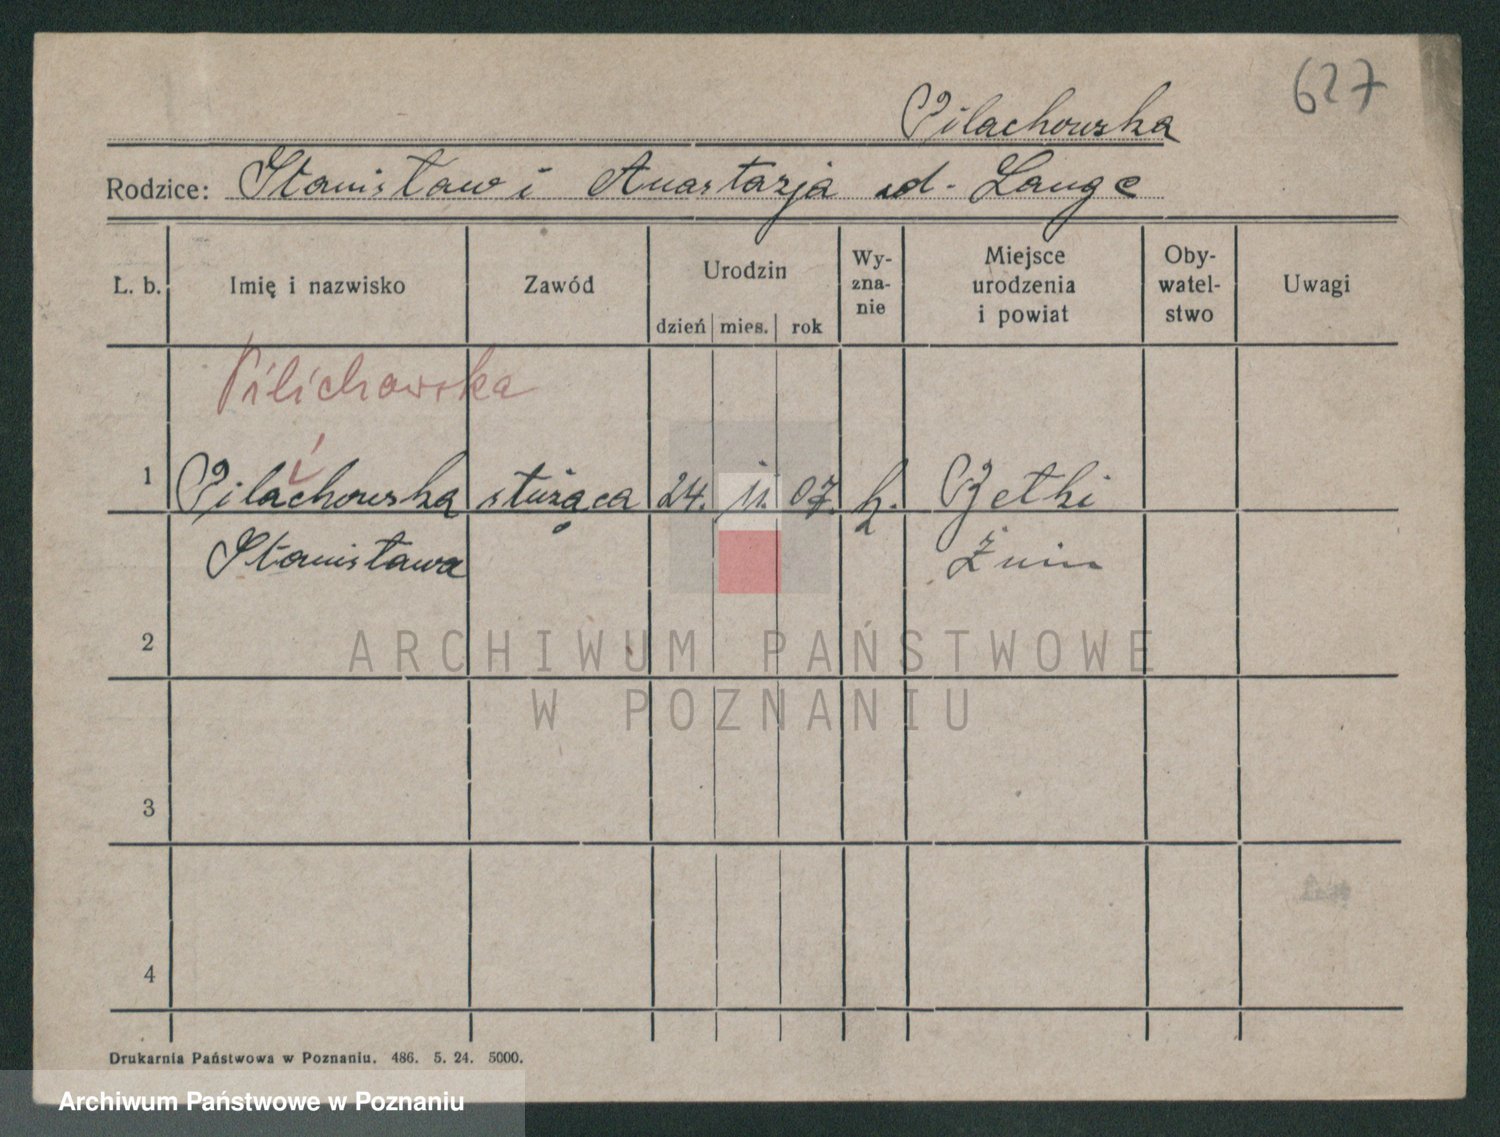 627
Pilachowska
Rodzice: Stanisław i Anastazja zd. Lange
Ł. b. Imię i nazwisko Zawód Urodzin dzień mies. rok Wy-zna-nie Miejsce urodzenia i powiat Oby-watel-stwo Uwagi
Pilichowska
1 Pilachowska służąca 24. 11. 07. k.
Stanisława Żnin
2
ARCHIWUM PAŃSTWOWE
W POZNANIU
3
4
Drukarnia Państwowa w Poznaniu. 486. 5. 24. 5000.
Archiwum Państwowe w Poznaniu